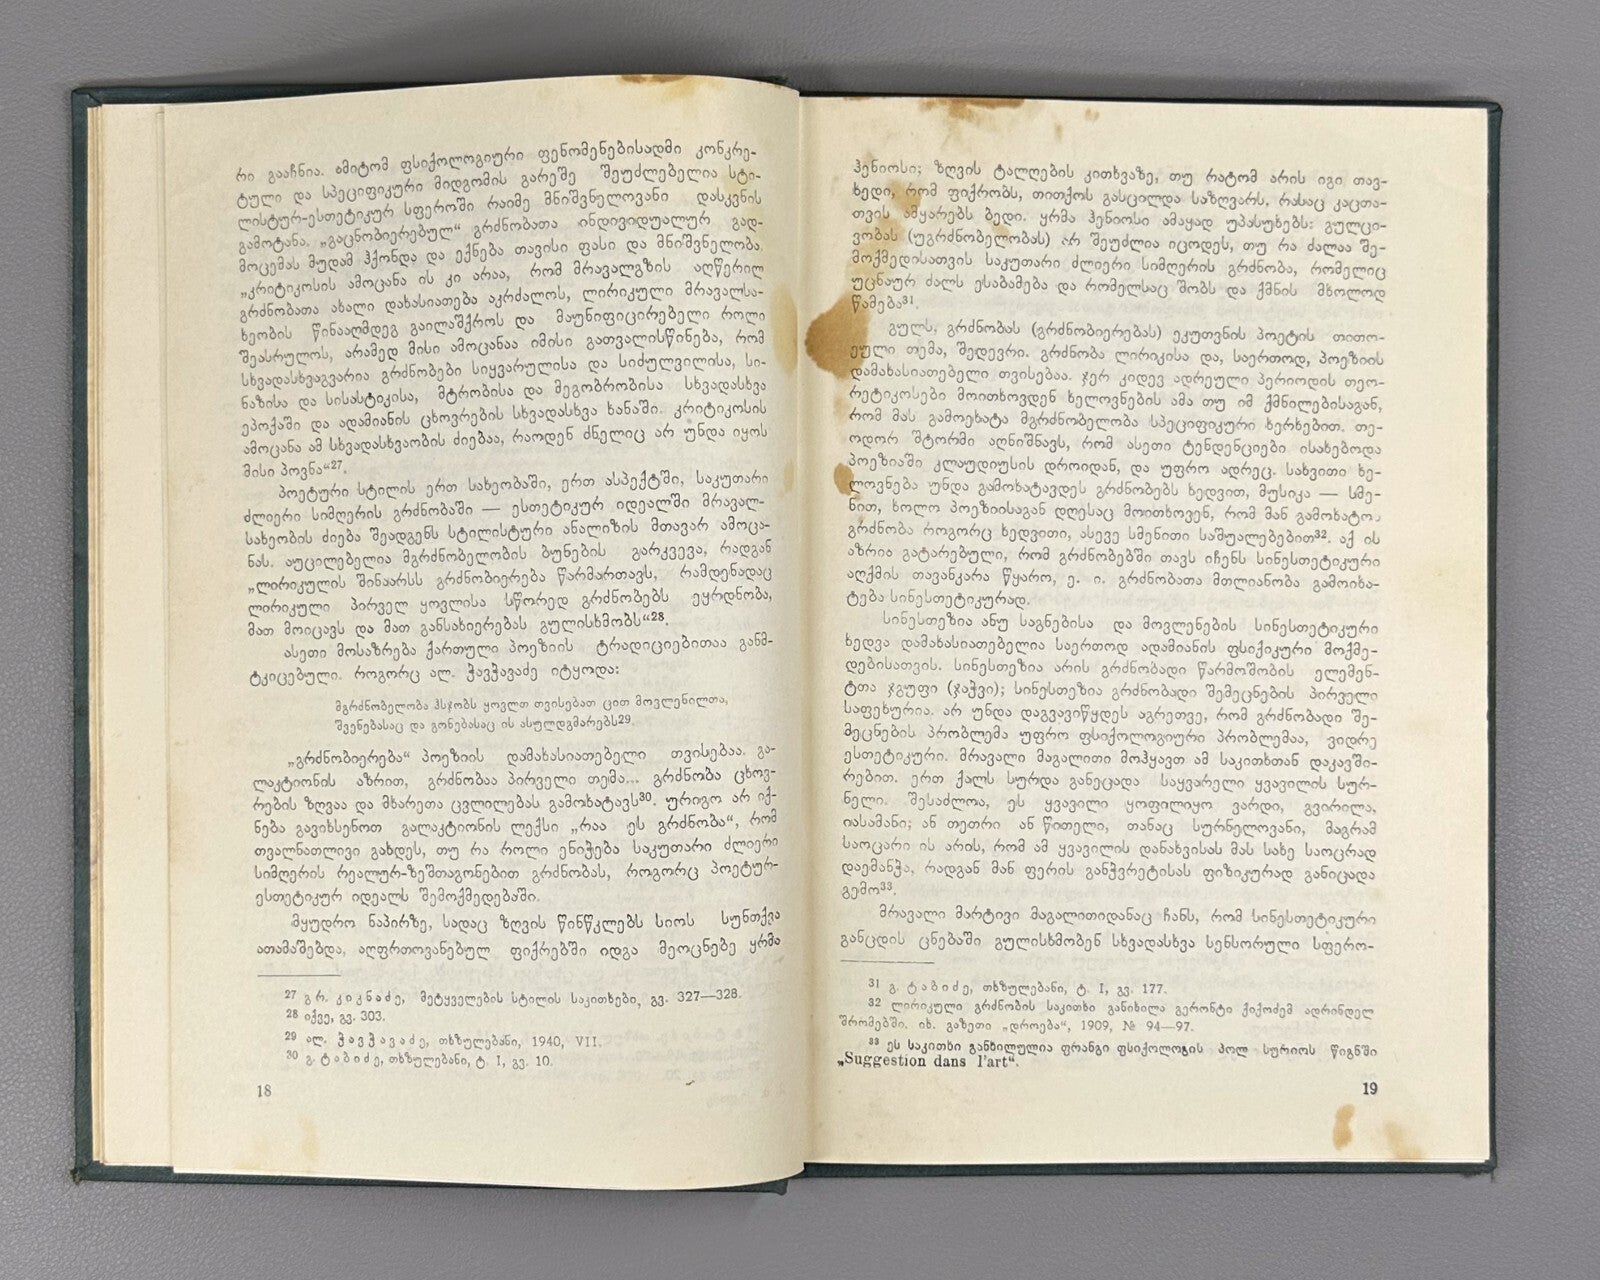 რი გააჩნია. ამიტომ ფსიქოლოგიური ფენომენებისადმი კონკრე-
ტული და სპეციფიკური მიდგომის გარეშე შეუძლებელია სტი-
ლისტურ-ესთეტიკურ სფეროში რაიმე მნიშვნელოვანი დასკვნის
გამოტანა. „გაცნობიერებულ“ გრძნობათა ინდივიდუალურ გად-
მოცემას მუდამ ჰქონდა და ექნება თავისი ფასი და მნიშვნელობა.
„კრიტიკოსის ამოცანა ის კი არაა, რომ მრავალგზის აღწერილ
გრძნობათა ახალი დახასიათება აკრძალოს, ლირიკული მრავალსა-
ხეობის წინააღმდეგ გაილაშქროს და მაუნიფიცირებელი როლი
შეასრულოს, არამედ მისი ამოცანაა იმისი გათვალისწინება, რომ
სხვადასხვაგვარია გრძნობები სიყვარულისა და სიძულვილისა, სი-
ნაზისა და სისასტიკისა, მტრობისა და მეგობრობისა სხვადასხვა
ეპოქაში და ადამიანის ცხოვრების სხვადასხვა ხანაში. კრიტიკოსის
ამოცანა ამ სხვადასხვაობის ძიებაა, რაოდენ ძნელიც არ უნდა იყოს
მისი პოვნა“27.
პოეტური სტილის ერთ სახეობაში, ერთ ასპექტში, საკუთარი
ძლიერი სიმღერის გრძნობაში — ესთეტიკურ იდეალში მრავალ-
სახეობის ძიება შეადგენს სტილისტური ანალიზის მთავარ ამოცა-
ნას. აუცილებელია მგრძნობელობის ბუნების გარკვევა, რადგან
„ლირიკულის შინაარსს გრძნობიერება წარმართავს, რამდენადაც
ლირიკული პირველ ყოვლისა სწორედ გრძნობებს ეყრდნობა,
მათ მოიცავს და მათ განსახიერებას გულისხმობს“28.
ასეთი მოსაზრება ქართული პოეზიის ტრადიციებითაა განმ-
ტკიცებული. როგორც ალ. ჭავჭავაძე იტყოდა:
მგრძნობელობა ჰსჯობს ყოვლთ თვისებათ ცით მოვლენილთა,
შვენებასაც და გონებასაც ის ასულდგმარებს29.
„გრძნობიერება“ პოეზიის დამახასიათებელი თვისებაა. გა-
ლაკტიონის აზრით, გრძნობაა პირველი თემა... გრძნობა ცხოვ-
რების ზღვაა და მხარეთა ცვლილებას გამოხატავს30. ურიგო არ იქ-
ნება გავიხსენოთ გალაკტიონის ლექსი „რაა ეს გრძნობა“, რომ
თვალნათლივი გახდეს, თუ რა როლი ენიჭება საკუთარი ძლიერი
სიმღერის რეალურ-ზეშთაგონებით გრძნობას, როგორც პოეტურ-
ესთეტიკურ იდეალს შემოქმედებაში.
მყუდრო ნაპირზე, სადაც ზღვის წინწკლებს სიოს სუნთქვა
ათამაშებდა, აღფრთოვანებულ ფიქრებში იდგა მეოცნებე ყრმა
27 გრ. კიკნაძე, მეტყველების სტილის საკითხები, გვ. 327—328.
28 იქვე, გვ. 303.
29 ალ. ჭავჭავაძე, თხზულებანი, 1940, VII.
30 გ. ტაბიძე, თხზულებანი, ტ. I, გვ. 10.
18
ჰენიოსი; ზღვის ტალღების კითხვაზე, თუ რატომ არის იგი თავ-
ხედი, რომ ფიქრობს, თითქოს გასცილდა საზღვარს, რასაც კაცთა-
თვის ამყარებს ბედი. ყრმა ჰენიოსი ამაყად უპასუხებს: გულცი-
ვობას (უგრძნობელობას) არ შეუძლია იცოდეს, თუ რა ძალაა შე-
მოქმედისათვის საკუთარი ძლიერი სიმღერის გრძნობა, რომელიც
უცნაურ ძალს ესაბამება და რომელსაც შობს და ქმნის მხოლოდ
წამება31.
გულს, გრძნობას (გრძნობიერებას) ეკუთვნის პოეტის თითო-
ეული თემა, შედევრი. გრძნობა ლირიკისა და, საერთოდ, პოეზიის
დამახასიათებელი თვისებაა. ჯერ კიდევ ადრეული პერიოდის თეო-
რეტიკოსები მოითხოვდნენ ხელოვნების ამა თუ იმ ქმნილებისაგან,
რომ მას გამოეხატა მგრძნობელობა სპეციფიკური ხერხებით. თე-
ოდორ შტორმი აღნიშნავს, რომ ასეთი ტენდენციები ისახებოდა
პოეზიაში კლაუდიუსის დროიდან, და უფრო ადრეც. სახვითი ხე-
ლოვნება უნდა გამოხატავდეს გრძნობებს ხედვით, მუსიკა — სმე-
ნით, ხოლო პოეზიისაგან დღესაც მოითხოვენ, რომ მან გამოხატოს
გრძნობა როგორც ხედვითი, ასევე სმენითი საშუალებებით32. აქ ის
აზრია გატარებული, რომ გრძნობებში თავს იჩენს სინესთეტიკური
აღქმის თავანკარა წყარო, ე. ი. გრძნობათა მთლიანობა გამოიხა-
ტება სინესთეტიკურად.
სინესთეზია ანუ საგნებისა და მოვლენების სინესთეტიკური
ხედვა დამახასიათებელია საერთოდ ადამიანის ფსიქიკური მოქმე-
დებისათვის. სინესთეზია არის გრძნობადი წარმოშობის ელემენ-
ტთა ჯგუფი (ჯაჭვი); სინესთეზია გრძნობადი შემეცნების პირველი
საფეხურია. არ უნდა დაგვავიწყდეს აგრეთვე, რომ გრძნობადი შე-
მეცნების პრობლემა უფრო ფსიქოლოგიური პრობლემაა, ვიდრე
ესთეტიკური. მრავალი მაგალითი მოჰყავთ ამ საკითხთან დაკავში-
რებით. ერთ ქალს სურდა განეცადა საყვარელი ყვავილის სურ-
ნელი. შესაძლოა, ეს ყვავილი ყოფილიყო ვარდი, გვირილა,
იასამანი; ან თეთრი ან წითელი, თანაც სურნელოვანი, მაგრამ
საოცარი ის არის, რომ ამ ყვავილის დანახვისას მას სახე საოცრად
დაემანჭა, რადგან მან ფერის განჭვრეტისას ფიზიკურად განიცადა
გემო33.
მრავალი მარტივი მაგალითიდანაც ჩანს, რომ სინესთეტიკური
განცდის ცნებაში გულისხმობენ სხვადასხვა სენსორული სფერო-
31 გ. ტაბიძე, თხზულებანი, ტ. I, გვ. 177.
32 ლირიკული გრძნობის საკითხი განიხილა გერონტი ქიქოძემ ადრინდელ
შრომებში. იხ. გაზეთი „დროება“, 1909, № 94—97.
33 ეს საკითხი განხილულია ფრანგი ფსიქოლოგის პოლ სურიოს წიგნში
„Suggestion dans l'art“.
19